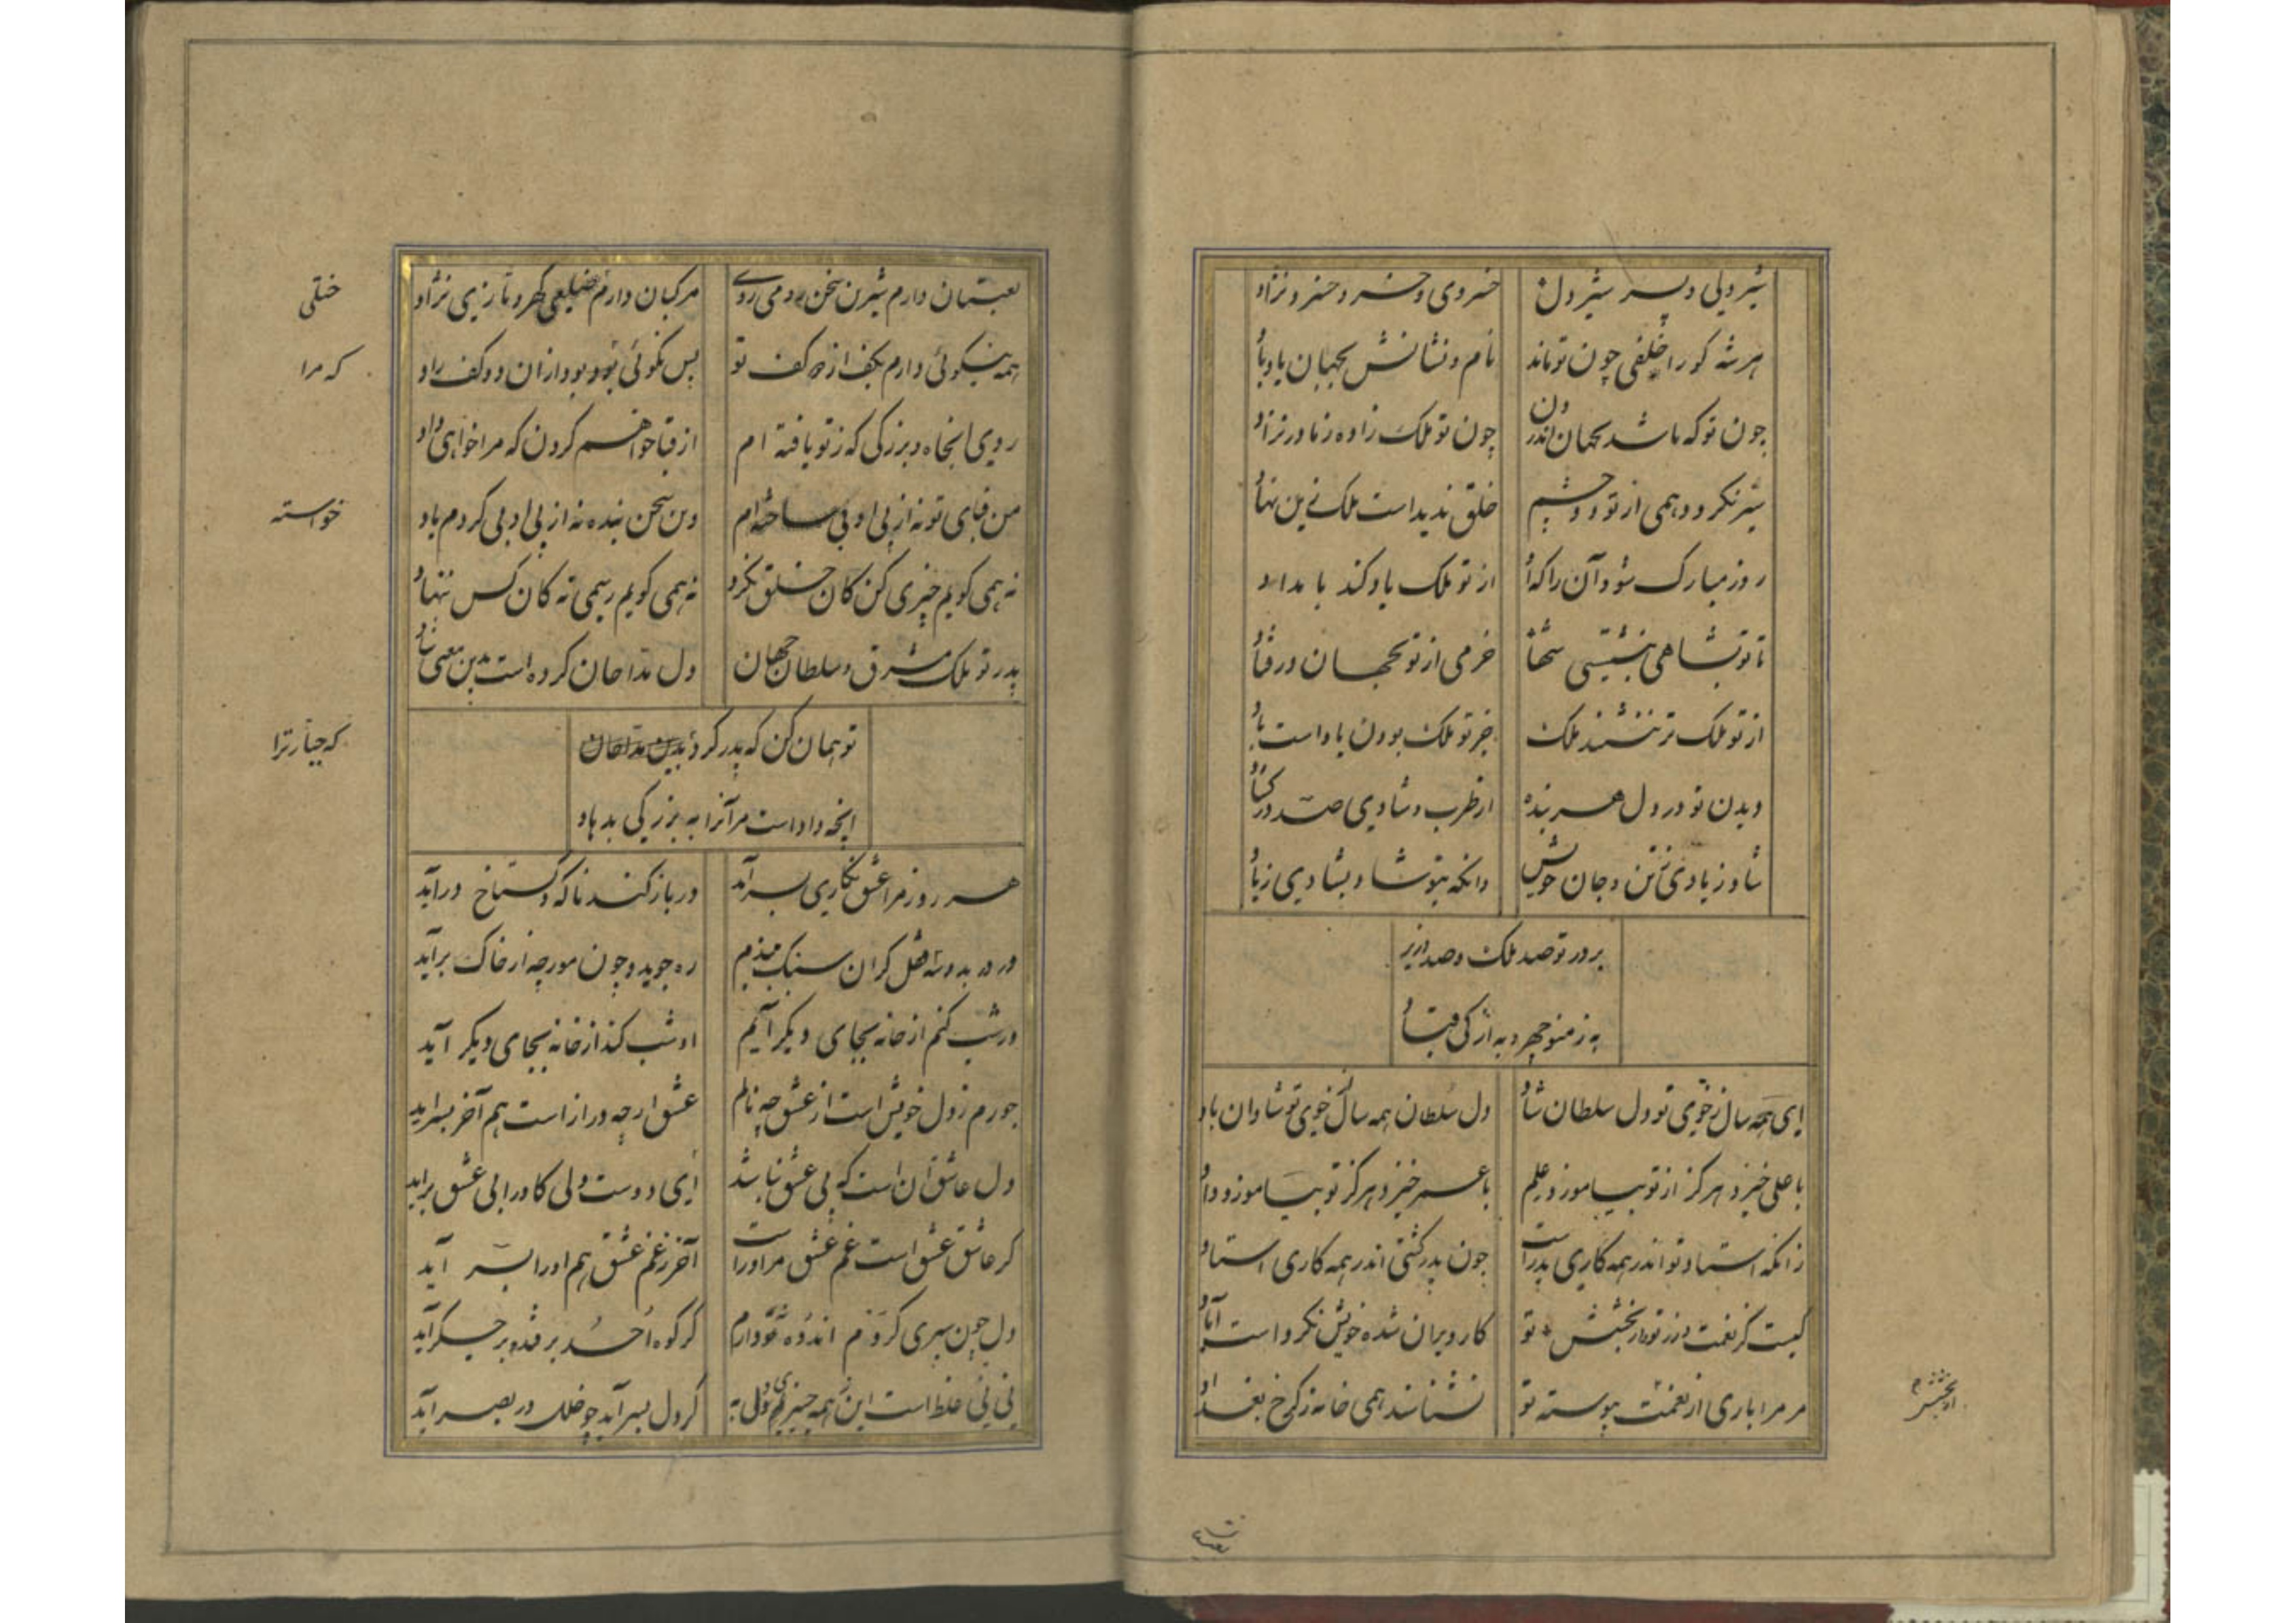 شیردلی و پسر شیردل خسروی و خسرو خسرونژاد
هر شه کو را خلفی چون تو ماند نام و نشانش بجهان یاد باد
چون تو که باشد بجهان اندرون چون تو ملک زاده ز مادر نزاد
سیر نکردد همی از تو دو چشم خلق ندیداست ملک زین نهاد
روز مبارک شود آن را که او از تو ملک یاد کند بامداد
تا تو بشاهی بنشستی شها خرمی از تو بجهان در فتاد
از تو ملک تر ننشیند ملک جز تو ملک بودن باد است باد
دیدن تو در دل هر بنده از طرب و شادی صد در کشاد
شاد زیادی بتن و جان خویش وانکه بتو شاد بشادی زیاد
بر در تو صد ملک و صد وزیر
به ز منوچهر و به از کی قباد
ای همه سال ز خوی تو دل سلطان شاد دل سلطان همه سال از خوی تو شادان باد
با علی خیزد هر کز از تو بیاموزد علم با عمر خیزد هر کز تو بیاموزد داد
زانکه استاد تو اندر همه کاری پدر است چون پدر کشتی اندر همه کاری استاد
کیست کز نعمت و از بخشش تو کار ویران شده خویش نکرد است آباد
مر مرا باری از نعمت پیوسته تو نشناسند همی خانه ز کرخ بغداد
از بخشش
لعبتان دارم شیرین سخن رومی روی مرکبان دارم ختلی کهر و تازی نژاد
ختلی
همه نیکوئی دارم بکف از کف تو پس نکوئی بود بود از ان دو کف راد
که مرا
روی انجاه و بزرکی که ز تو یافته ام از قبا خواهم کردن که مرا خواهی داد
من قبای تو نه از بی ادبی ساخته ام وین سخن بنده نه از بی ادبی کردم یاد
خواسته
نه همی کویم چیزی کن کان خلق نکرد نه همی کویم رسمی نه کان کس ننهاد
پدر تو ملک مشرق و سلطان جهان دل مداحان کرده است بدین معنی شاد
تو همان کن که پدر کرد
انچه داد است مر آنرا به بزرکی بدهاد
هر روز مرا عشق نکاری بسر آید در باز کند ناکه و کستاخ درآید
ور در بدوسه قفل کران سنک ببندم ره جوید و چون مورچه از خاک برآید
ور شب کنم از خانه بجای دیکر آیم او شب کند از خانه بجای دیکر آید
جورم ز دل خویش است از عشق چه نالم عشق ارچه دراز است هم آخر بسر آید
دل عاشق آن است که بی عشق نباشد ای دوست دلی کاو را بی عشق برآید
کر عاشق عشق است غم عشق مر او راست آخر ز غم عشق هم او را بسر آید
دل چون سپری کردم اندوه تو دارم کر کوه احد بر فتد و بر جکر آید
نی نی غلط است این همه چیزم ز دل به کر دل بسر آید چو خلل در بصر آید